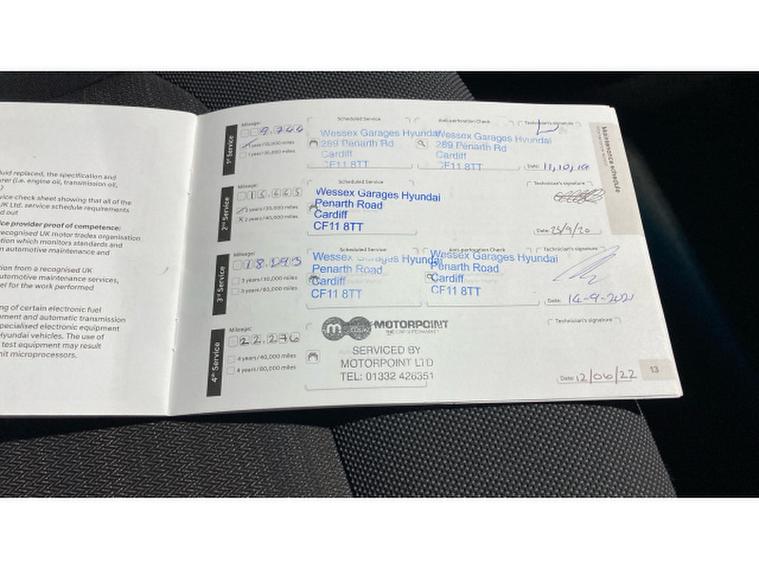 luid replaced, the specification and
rer (i.e. engine oil, transmission oil,
vice check sheet showing that all of the
UK Ltd. service schedule requirements
d out
ice provider proof of competence:
recognised UK motor trades organisation
tion which monitors standards and
n automotive maintenance and
tion from a recognised UK
utomotive maintenance services,
el for the work performed
ng of certain electronic fuel
ment and automatic transmission
pecialised electronic equipment
Hyundai vehicles. The use of
test equipment may result
nit microprocessors.
Maintenance schedule
1st Service
Mileage:
9.744
Scheduled Service
Wessex Garages Hyundai
289 Penarth Rd
Cardiff
CF11 8TT
Anti-perforation Check
Wessex Garages Hyundai
289 Penarth Rd
Cardiff
CF11 8TT
Technician's signature
Date: 11,10,19
2nd Service
Mileage:
2 years/20,000 miles
Scheduled Service
Wessex Garages Hyundai
Penarth Road
Cardiff
CF11 8TT
Technician's signature
Date: 25/9/20
3rd Service
Mileage:
3 years/30,000 miles
3 years/60,000 miles
Scheduled Service
Wessex Garages Hyundai
Penarth Road
Cardiff
CF11 8TT
Anti-perforation Check
Wessex Garages Hyundai
Penarth Road
Cardiff
CF11 8TT
Technician's signature
Date: 14-9-2021
4th Service
Mileage:
22.276
4 years/40,000 miles
4 years/80,000 miles
MOTORPOINT
SERVICED BY
MOTORPOINT LTD
TEL: 01332 426351
Technician's signature
Date: 12/06/22
13